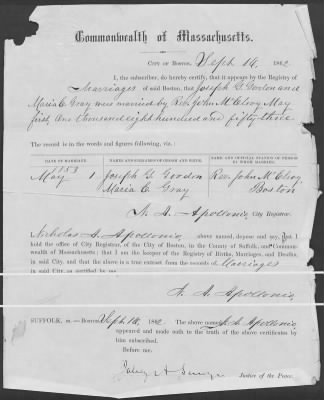 Commonwealth of Massachusetts.
CITY OF BOSTON, Sept 14, 1862
I, the subscriber, do hereby certify, that it appears by the Registry of
Marriages of said Boston, that Joseph G. Gordon and
Maria C. Gray were married by Rev. John McElroy May
first, One thousand eight hundred and fifty three
The record is in the words and figures following, viz:
DATE OF MARRIAGE. NAMES AND SURNAMES OF GROOM AND BRIDE. NAME AND OFFICIAL STATION OF PERSON BY WHOM MARRIED.
1853
May 1 Joseph G. Gordon Rev. John McElroy
Maria C. Gray Boston
N. A. Apollonio, City Registrar.
Nicholas A. Apollonio above named, depose and say, that I
hold the office of City Registrar, of the City of Boston, in the County of Suffolk, and Common-
wealth of Massachusetts; that I am the keeper of the Registry of Births, Marriages, and Deaths,
in said City, and that the above is a true extract from the records of Marriages
in said City, as certified by me
N. A. Apollonio
SUFFOLK, ss.—Boston, Sept 14, 1862 The above named N. A. Apollonio
appeared and made oath to the truth of the above certificates by
him subscribed.
Before me,
Justice of the Peace.